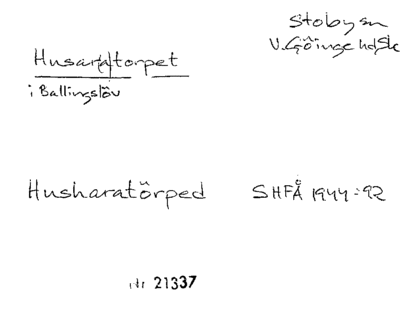 Stoby sn
V. Göinge hd Sk
Husaratorpet
i Ballingslöv
Husharatörped SHFÅ 1944:92
Nr 21337